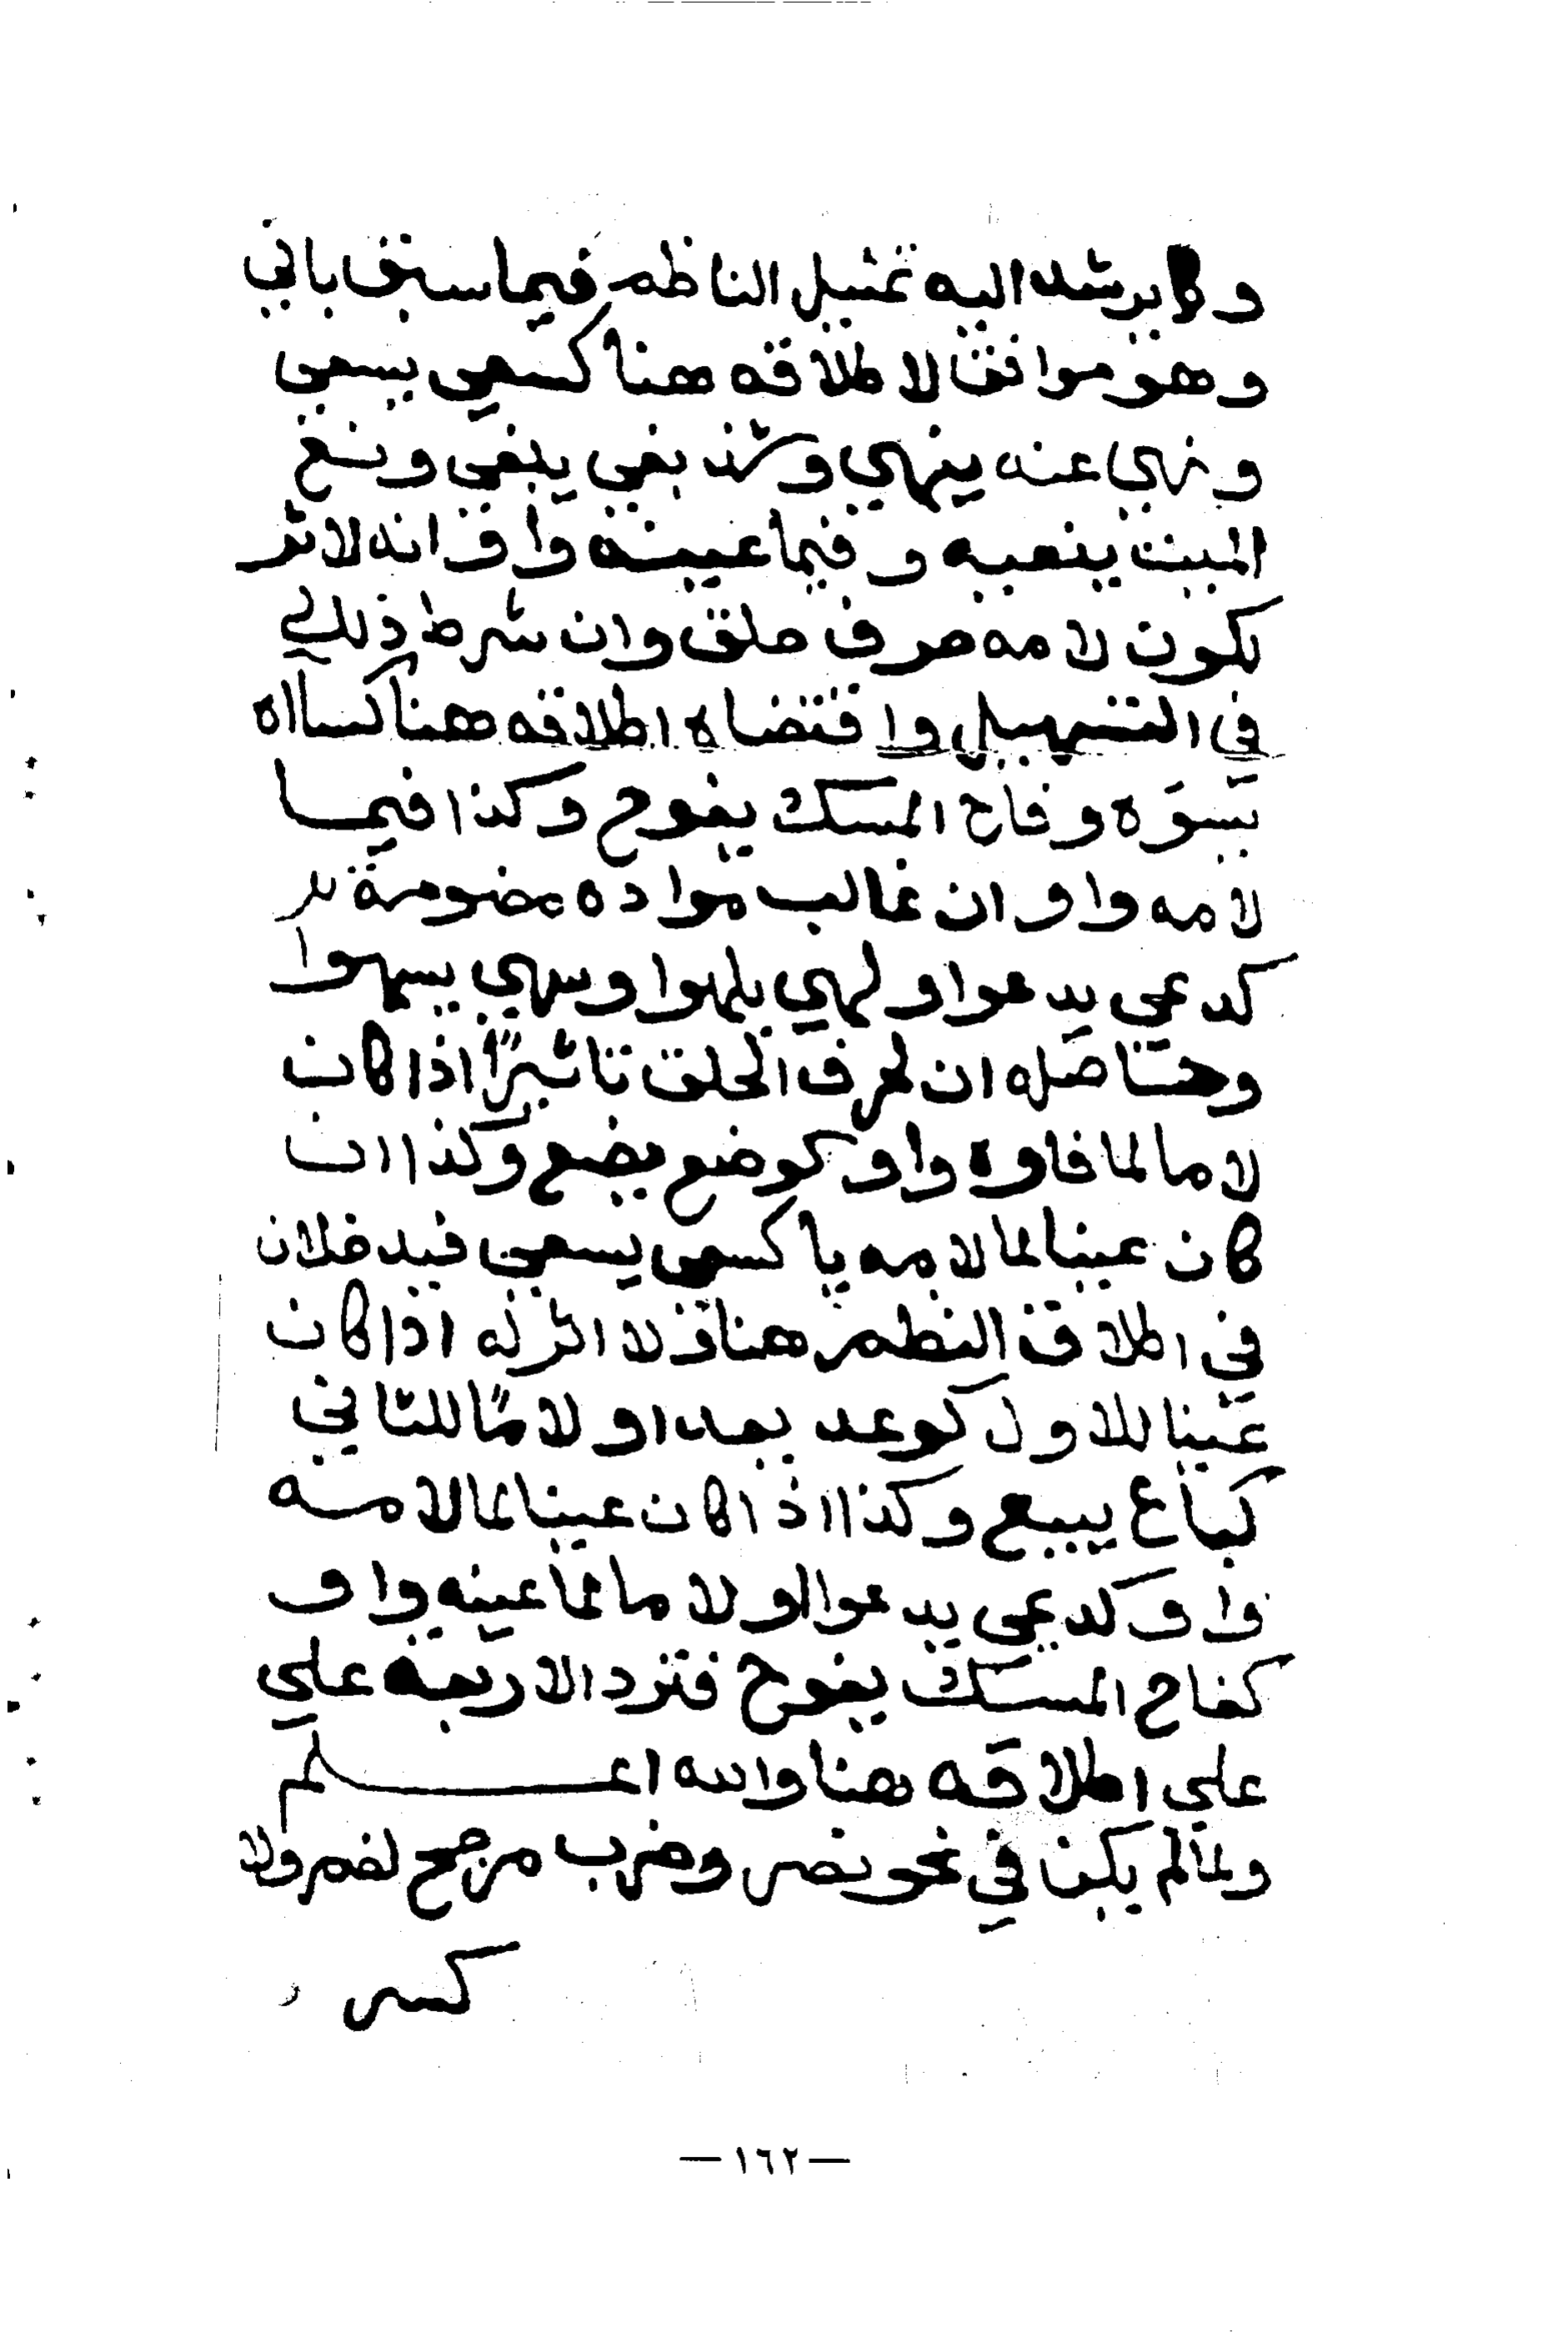 وكما يرشد اليه تمثيل الناظم فيما سبق باتي
وهو موافق لاطلاقه هنا كسعي يسعي
ونهي عنه ينهي وشذ بغي يبغي ونـعي
الميت ينعيه وفيما عينه واو انه لا اثر
لكون لامه حرف حلق وان شرط ذلك
في التسهيل واقتضاه اطلاقه هنا كساه
يسوءه وفاح المسك يفوح وكذا فيما
لامه واو وان غالب مواده مضمومة
كدعي يدعوا ولهي يلهوا وسهي يسهوا
وحاصله ان لحرف الحلق تاثيرًا اذا كان
لاما لما فاوه واو كوضع يضع وكذا ان
كان عينا لما لامه يا كسعي يسعي فيد خلان
في اطلاق النظم هنا ولا اثر له اذا كان
عينا للاول كوعد يعد او لامًا للثاني
كباع يبيع وكذا اذا كان عينا لما لامه
واو كدعي يدعوا او لاما لما عينه واو
كفاح المسك يفوح فترد الاربعة علي
علي اطلاقه هنا والله اعلم
ولما لم يكن في نحو نصر وضرب مرجح لضم ولا
كسر
— ١٦٢ —